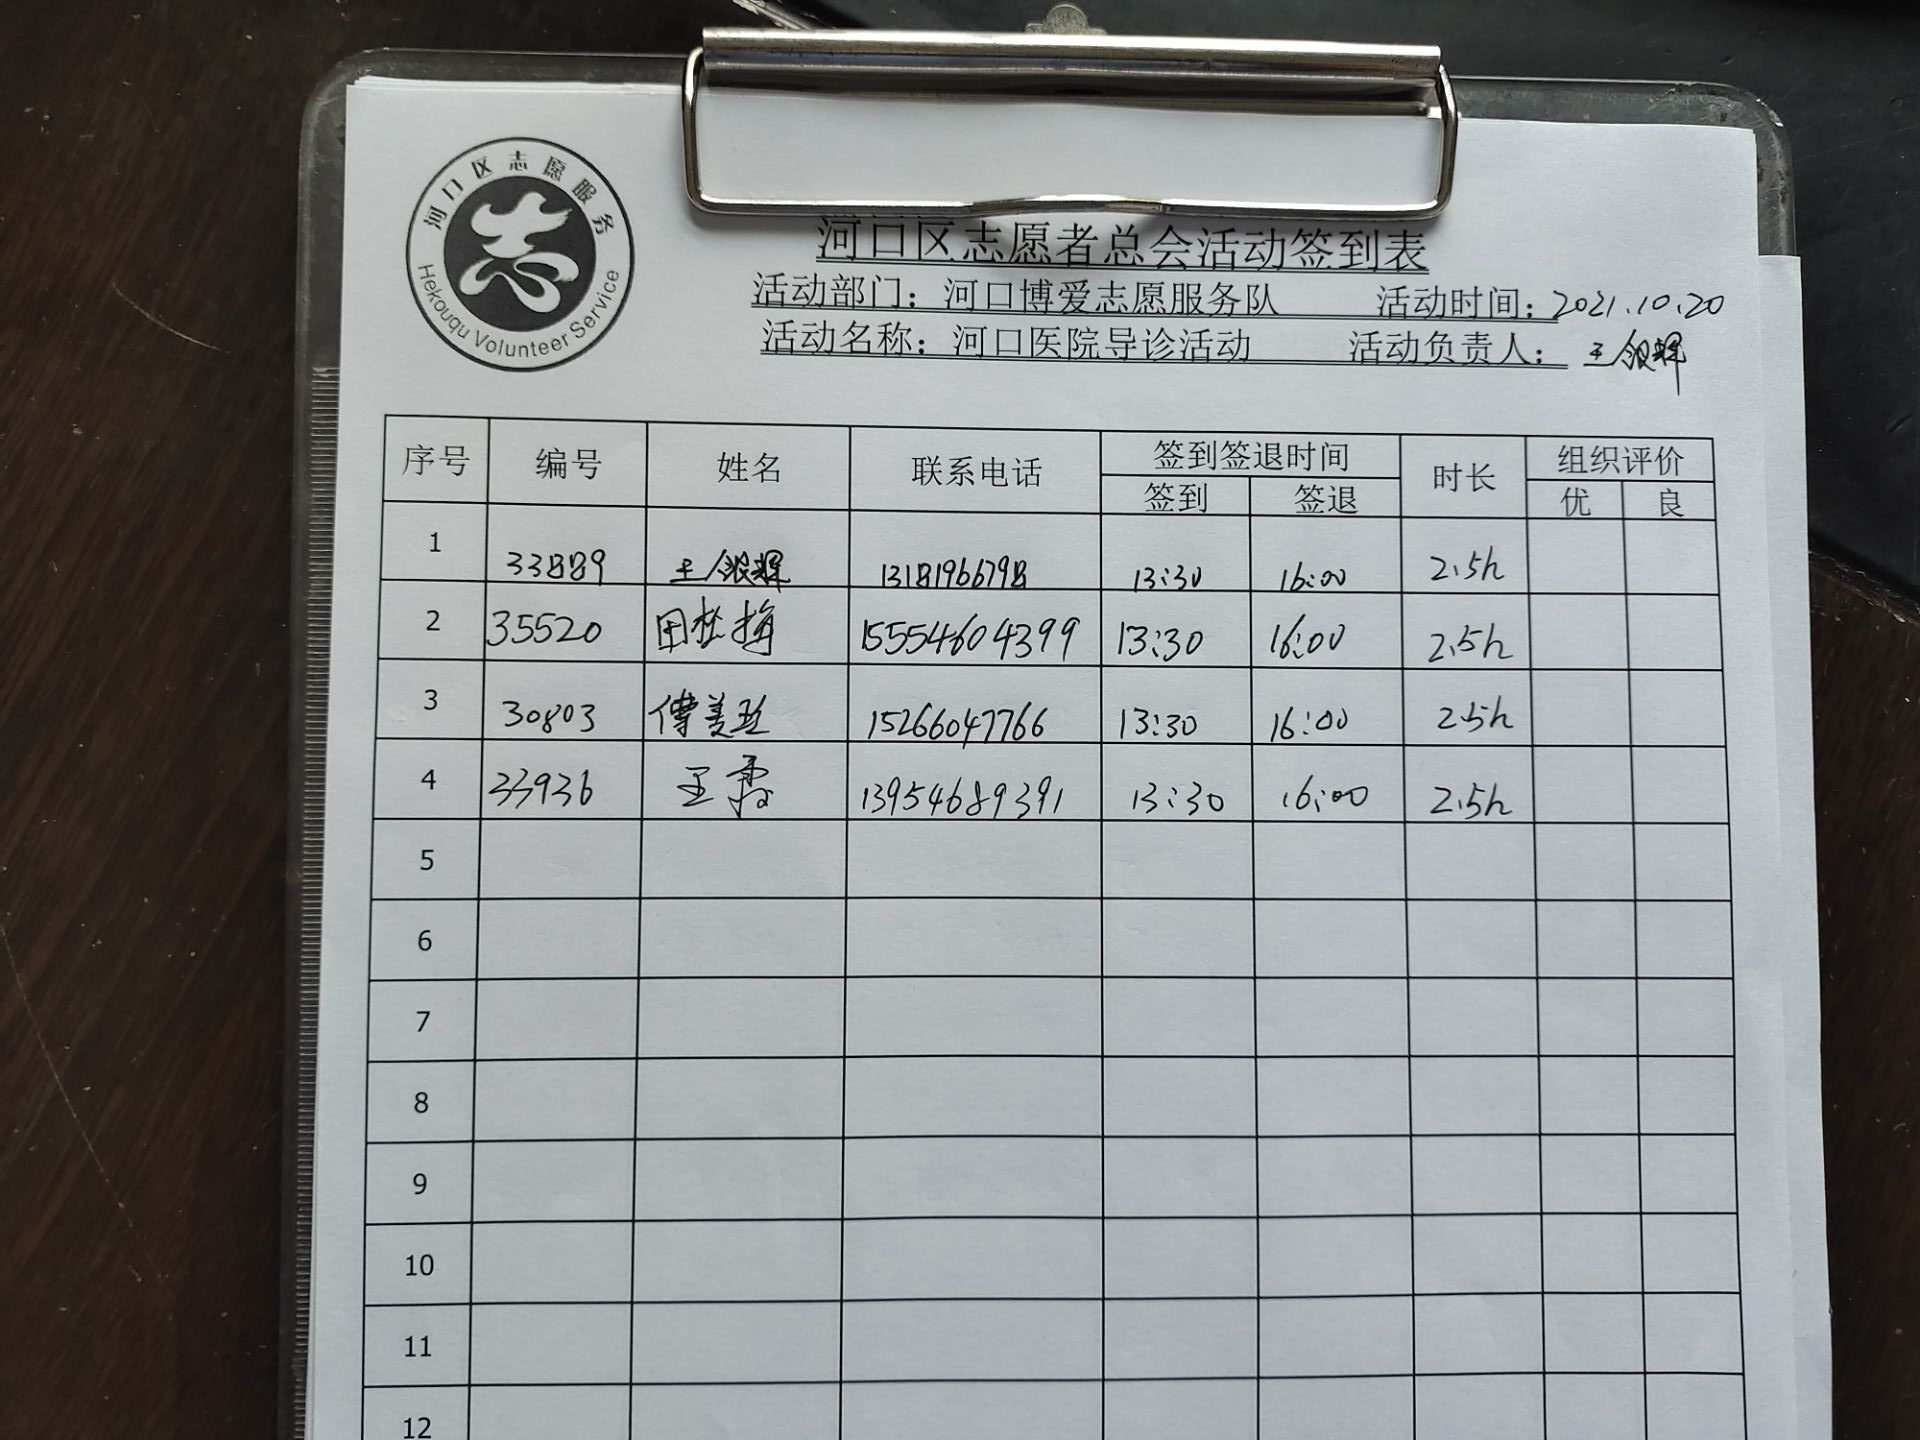 河口区志愿服务
Hekouqu Volunteer Service
河口区志愿者总会活动签到表
活动部门：河口博爱志愿服务队 活动时间：2021.10.20
活动名称：河口医院导诊活动 活动负责人：王银辉
序号 编号 姓名 联系电话 签到签退时间 时长 组织评价
签到 签退 优 良
1 33889 王银辉 13181966798 13:30 16:00 2.5h
2 35520 田桂梅 15554604399 13:30 16:00 2.5h
3 30803 傅美 15266047766 13:30 16:00 2.5h
4 33936 王霞 13954689391 13:30 16:00 2.5h
5
6
7
8
9
10
11
12